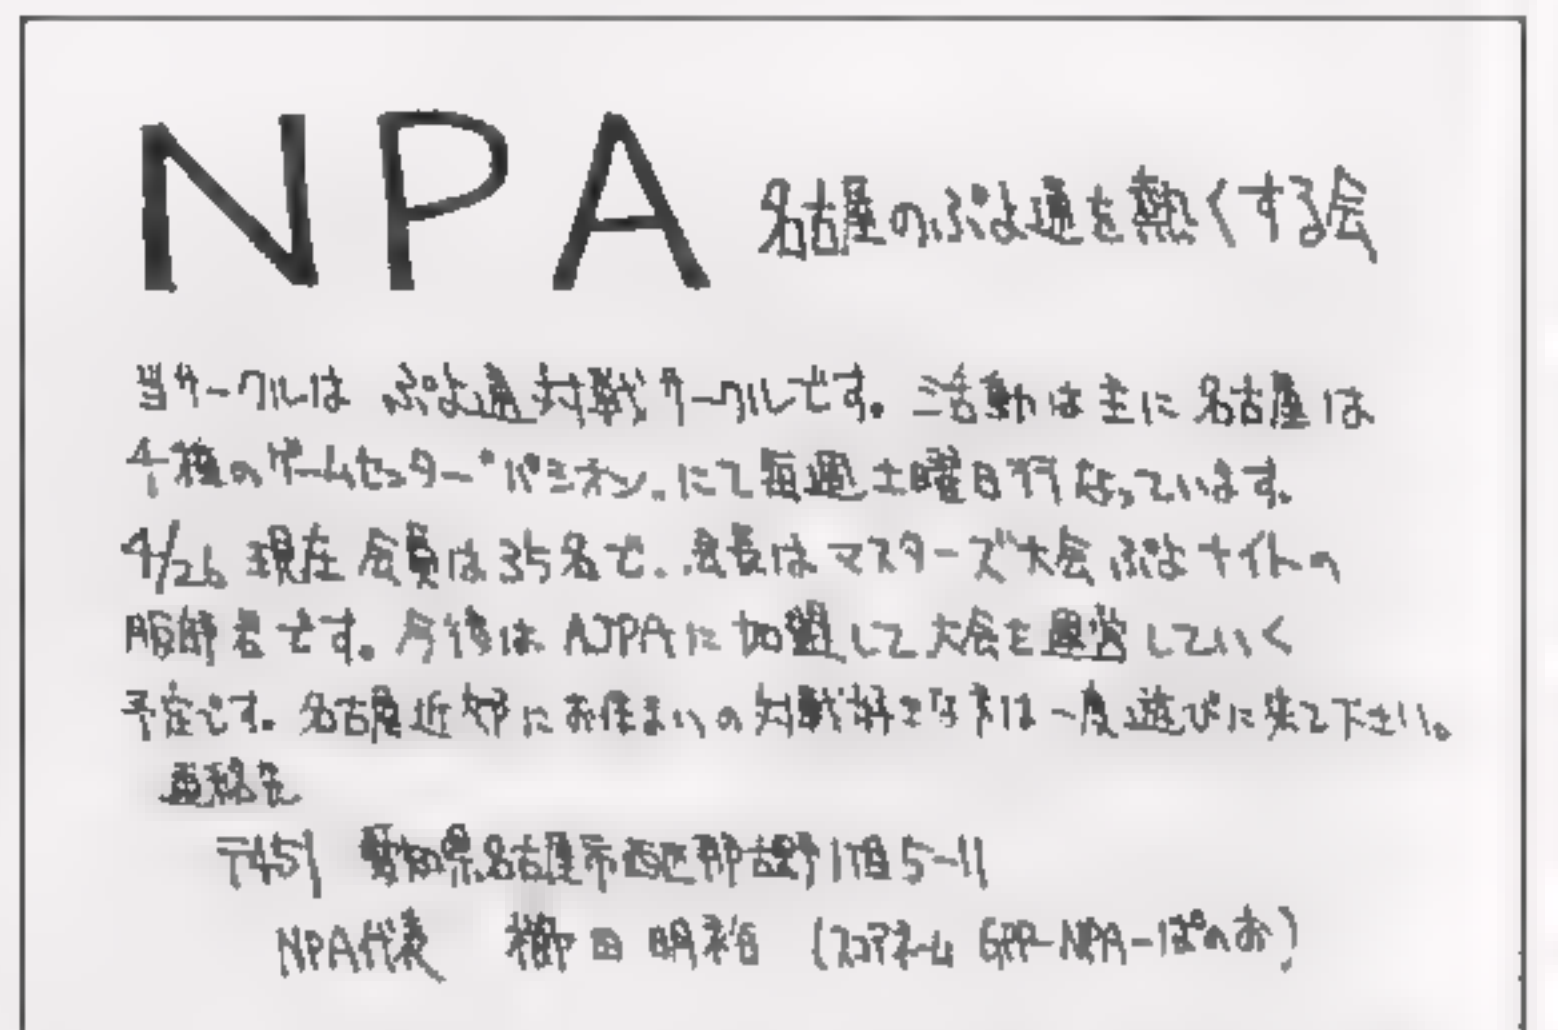 NPA 名古屋のぷよ通を熱くする会
当サークルは ぷよ通対戦サークルです。活動は主に名古屋は
千種のゲームセンター"パシオン"にて毎週土曜日行なっています。
4/26 現在 会員は35名で、会長はマスターズ大会ぷよナイトの
です。今後は AJPAに加盟して大会を運営していく
予定です。名古屋近郊にお住まいの対戦好きな方は一度遊びに来て下さい。
連絡先
〒451 愛知県名古屋市西区 5-11
NPA代表 田 (スコアネーム GPP-NPA-ぱのお)